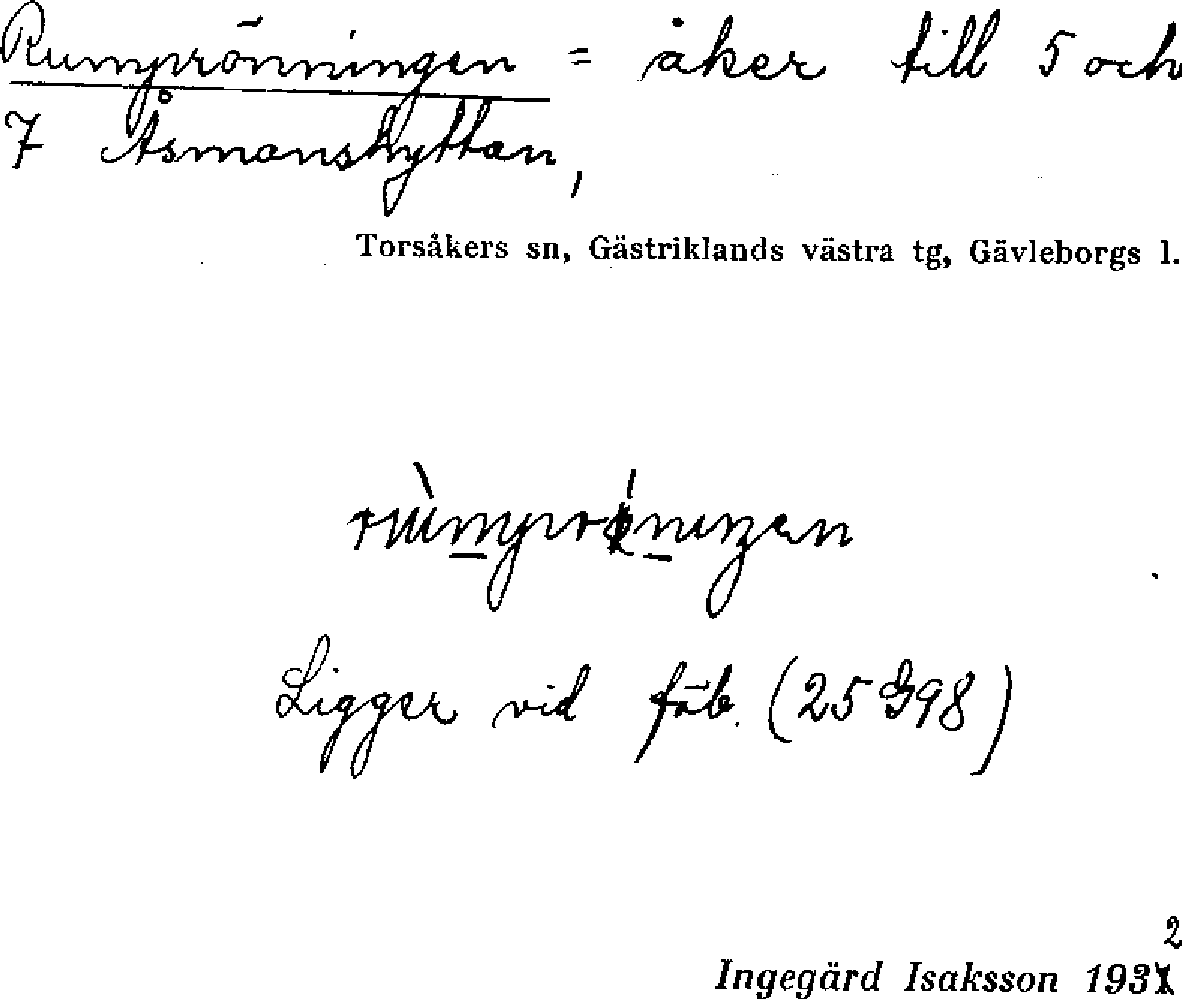 Rumprönningen = åker till 5 och
7 Åsmanshyttan,
Torsåkers sn, Gästriklands västra tg, Gävleborgs l.
Ligger vid fäb. (25398)
Ingegärd Isaksson 1932